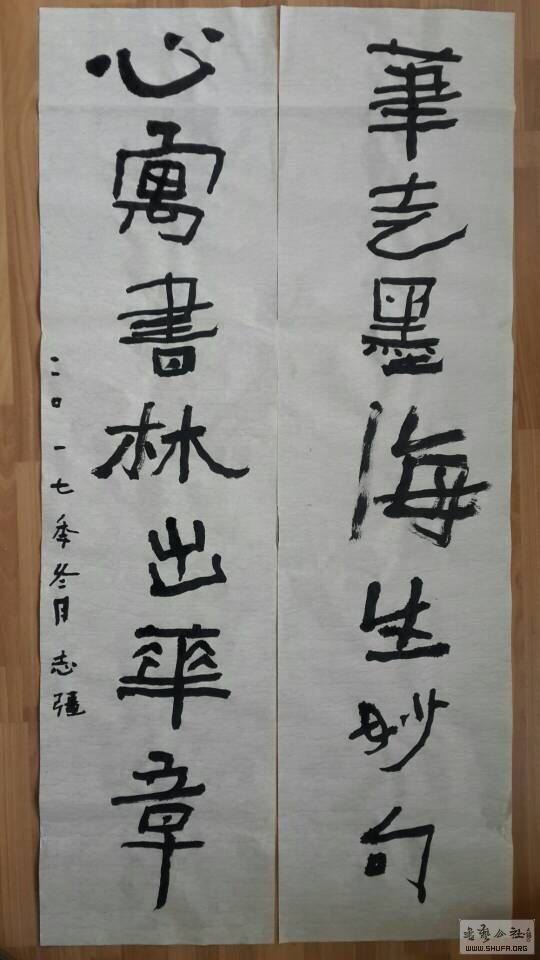 筆走墨海生妙句
心寓書林出華章
二〇一七年冬月 志彊
书艺公社
WWW.SHUFA.ORG